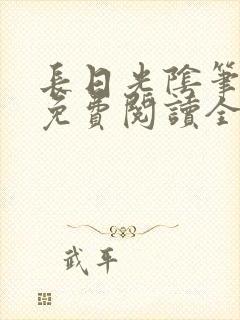 長日光陰筆
免費閱讀全
武平